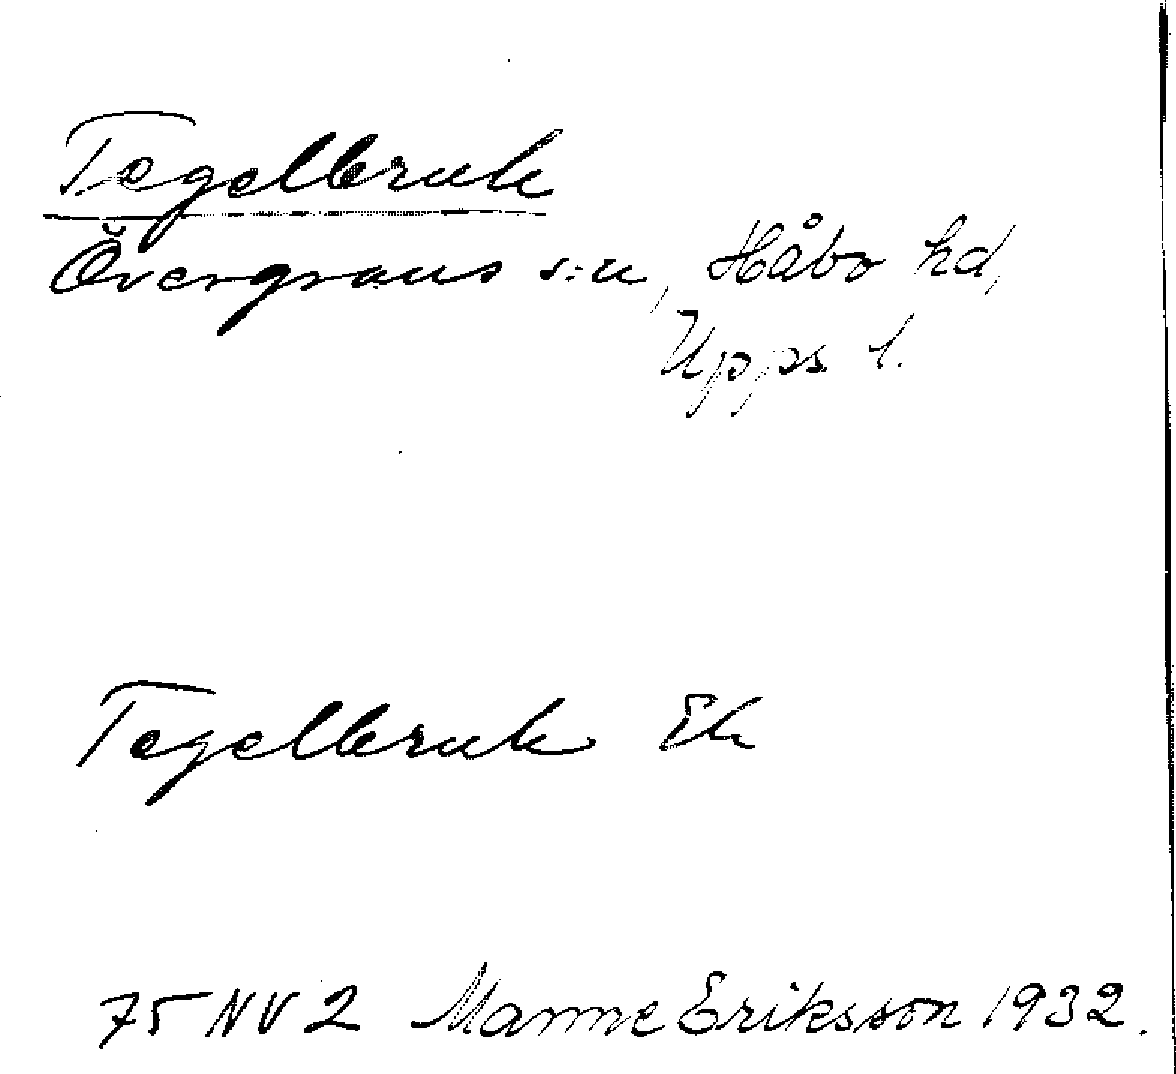 Tegelbruk
Övergrans s:n, Håbo hd,
Upps l.
Tegelbruk Ek
75 NV 2 Manne Eriksson 1932.